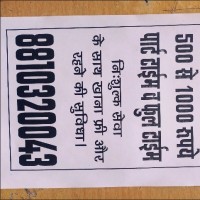 500 से 1000 रुपये
पार्ट टाईम व फुल टाईम
निःशुल्क सेवा
के साथ खाना की और
रहने की सुविधा।
8810320043